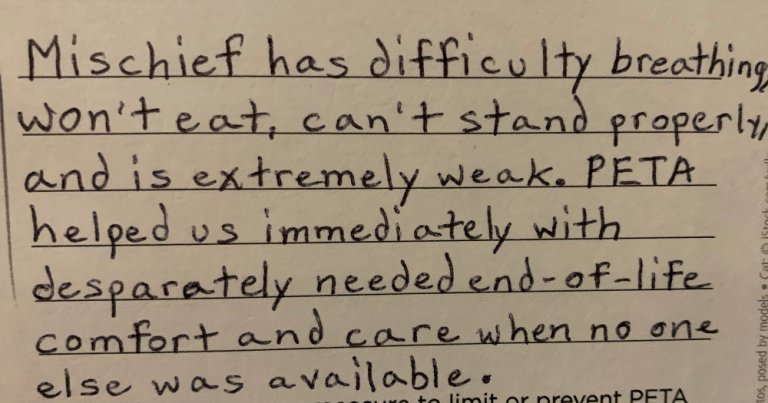 Mischief has difficulty breathing,
won't eat, can't stand properly,
and is extremely weak. PETA
helped us immediately with
desparately needed end-of-life
comfort and care when no one
else was available.
to limit or prevent PETA
posed by models • Cat: © iStock.com